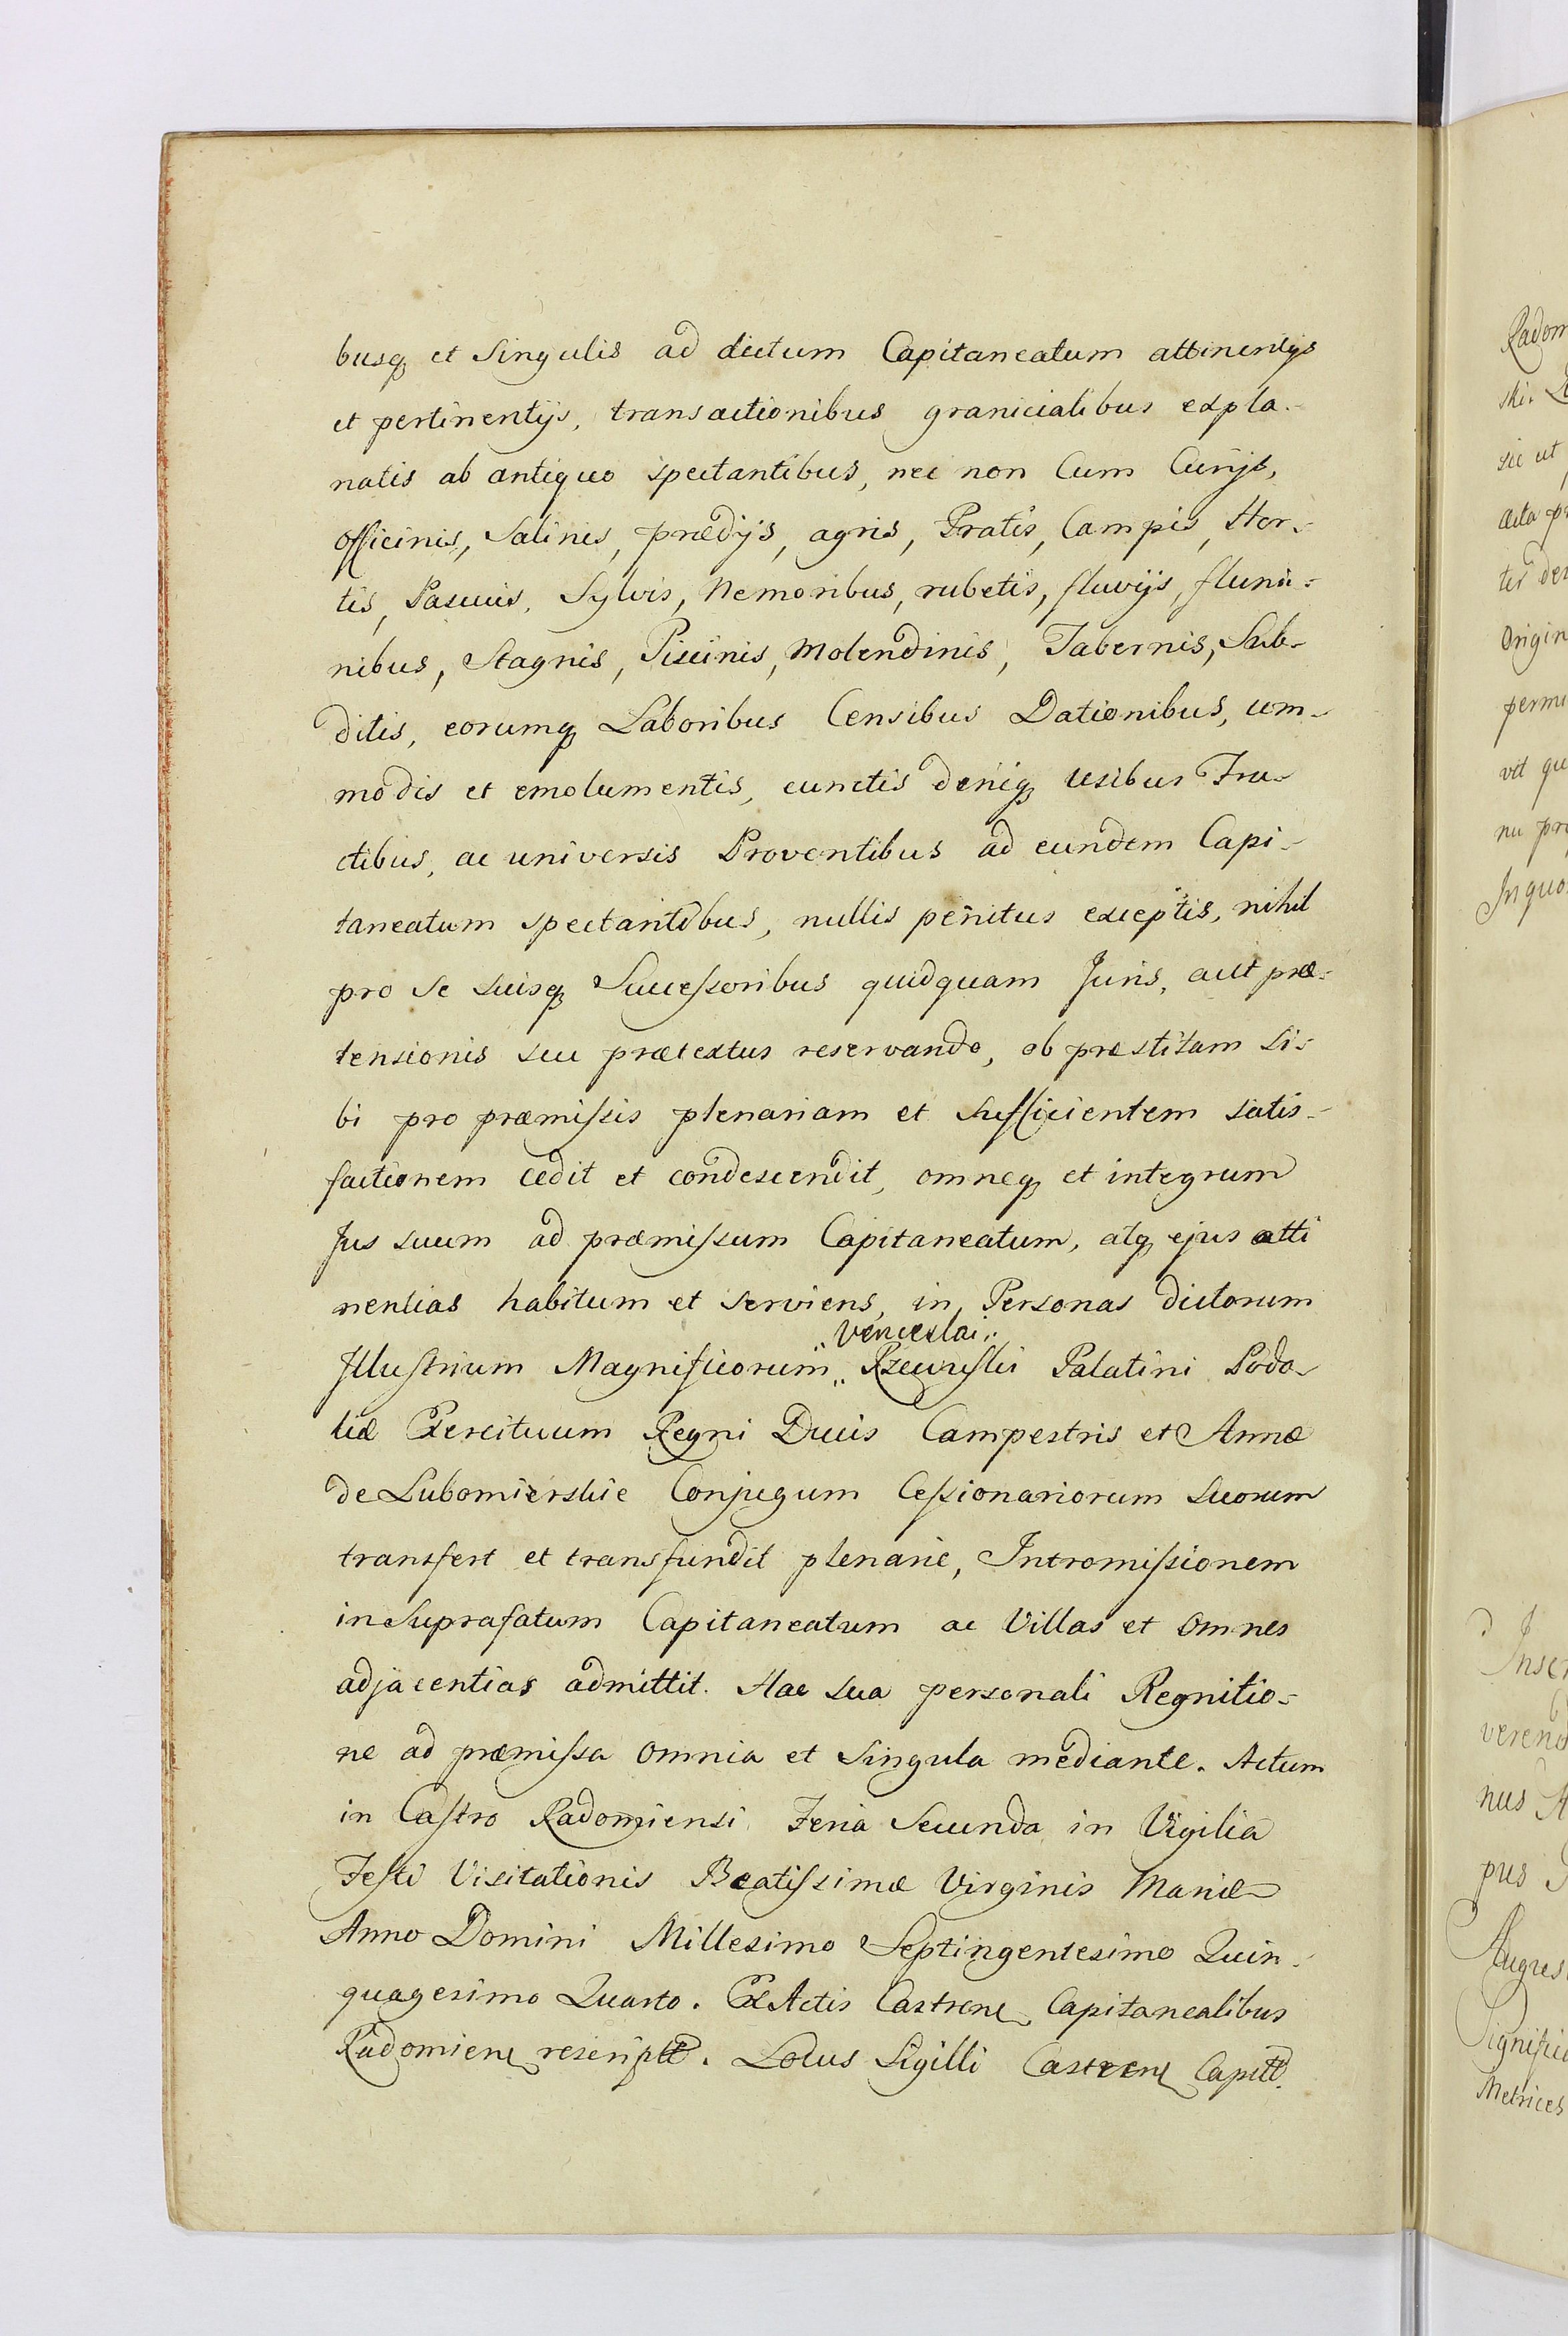 busq et Singulis ad dictum Capitaneatum attinentijs
et pertinentijs, transactionibus granicialibus expla-
natis ab antiquo spectantibus, nec non Cum Curijs,
officinis, Salinis, prædijs, agris, Pratis, Campis, Hor-
tis, Pascuis, Sylvis, Nemoribus, rubetis, fluvijs, flumi-
nibus, Stagnis, Piscinis, Molendinis, Tabernis, Sub-
ditis, eorumq Laboribus Censibus Dationibus, com-
modis et emolumentis, cunctis deniq usibus Fru-
ctibus, ac universis Proventibus ad eundem Capi-
taneatum spectantibus, nullis penitus exceptis, nihil
pro se suisq Successoribus quidquam Juris, aut præ-
tensionis seu prætextus reservando, ob præstitam si-
bi pro præmissis plenariam et sufficientem satis-
factionem cedit et condescendit, omneq et integrum
Jus suum ad præmissum Capitaneatum, atq ejus atti
nentias habitum et serviens, in Personas dictorum
Venceslai
Illustrium Magnificorum Rzewuski Palatini Podo-
liæ Exercituum Regni Ducis Campestris et Annæ
de Lubomierskie Conjugum Cessionariorum suorum
transfert et transfundit plenarie, Intromissionem
in Suprafatum Capitaneatum ac Villas et omnes
adjacentias admittit. Hac sua personali Regnitio-
ne ad præmissa omnia et singula mediante. Actum
in Castro Radomiensi Feria Secunda in Vigilia
Festi Visitationis Beatissimæ Virginis Mariæ
Anno Domini Millesimo Septingentesimo Quin-
quagesimo Quarto. Ex Actis Castren Capitanealibus
Radomien rescript. Locus Sigilli Castren Capitt.